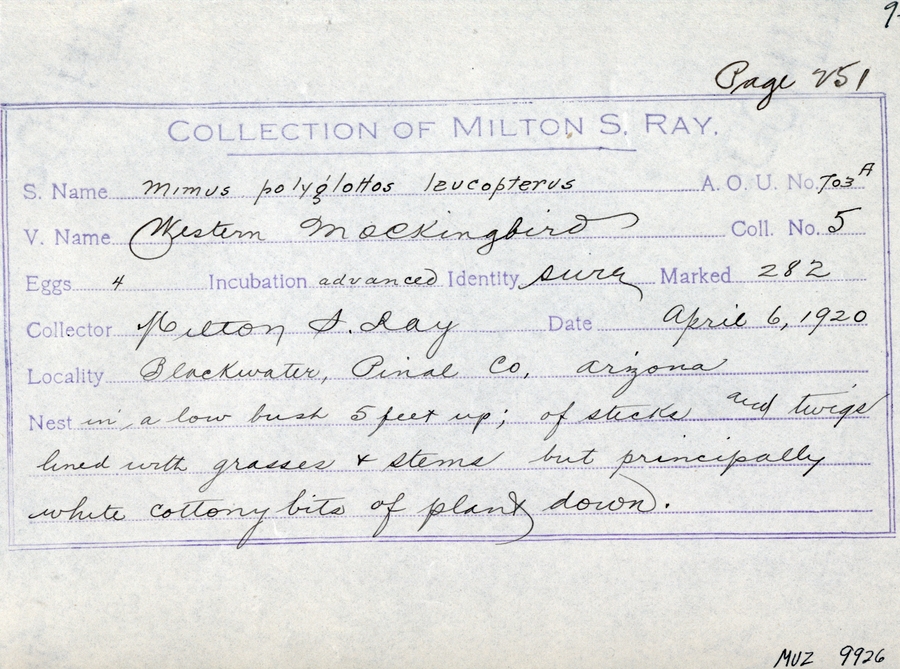 9-
Page 251
COLLECTION OF MILTON S. RAY.
S. Name Mimus polyglottos leucopterus A. O. U. No. 703 A
V. Name Western Mockingbird Coll. No. 5
Eggs 4 Incubation advanced Identity sure Marked 282
Collector Milton S. Ray Date April 6, 1920
Locality Blackwater, Pinal Co, Arizona
Nest in a low bush 5 feet up; of sticks and twigs
lined with grasses & stems but principally
white cottony bits of plant down.
MVZ 9926